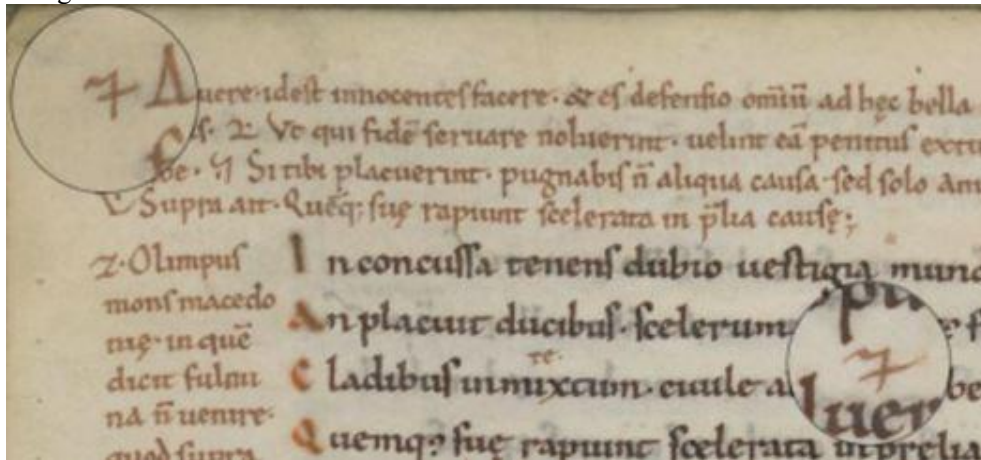 Auere· idest innocentes facere· & es defensio omiū ad hęc bella
Vt qui fidē seruare noluerint· uelint eā penitus
Si tibi placuerint· pugnabis n̄ aliqua causa· sed solo
Supra aīt· Quęq; suę rapiunt scelerata in p̄lia causę;
Olimpus
mons macedo
nię· in quē
dicit fulmi
na n̄ uenire·
quod supra
In concussa tenens dubio uestigia
An placuit ducibus· scelerum
te·
Cladibus inmixtum· ciuile
Quemq; suę rapiunt scelerata in prelia